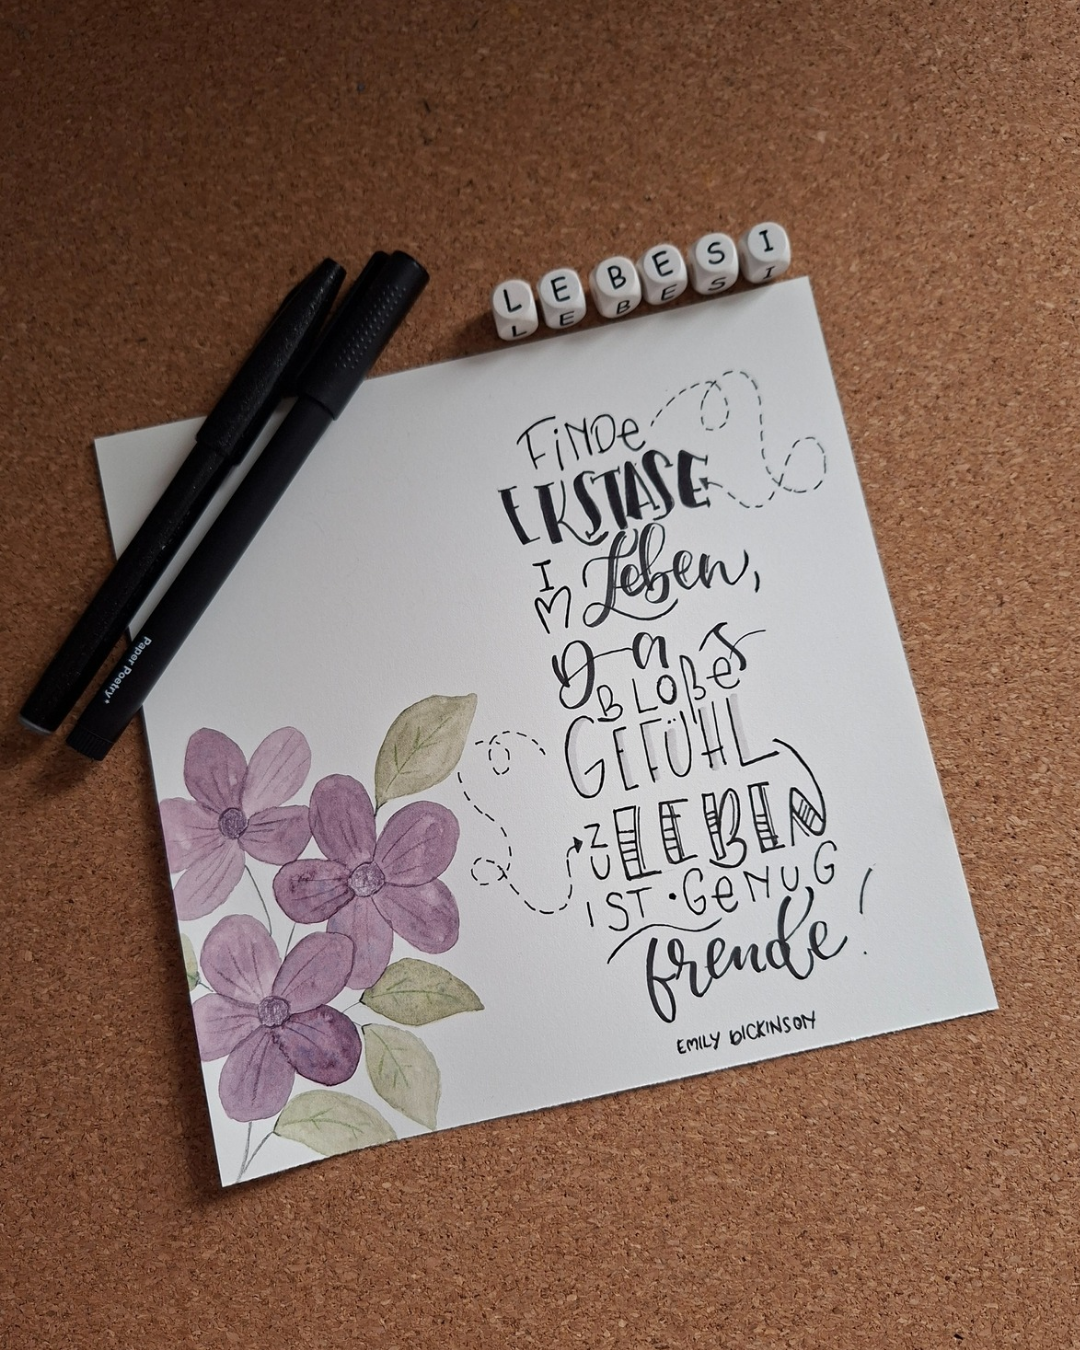 LEBESI
LEBESI
FiNDe
EKSTASE
IM Leben,
Das
BLOßes
GEFÜHL
ZU LEBEN
IST · GeNUG
freude!
EMILY DICKINSON
Paper Poetry®